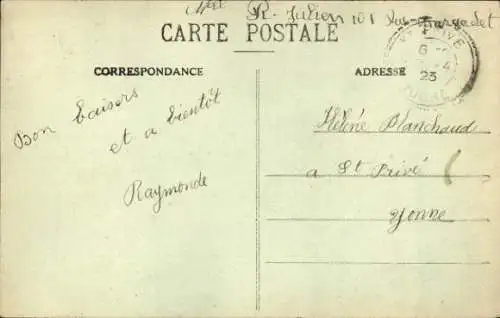 R. Julien 101
CARTE POSTALE
CORRESPONDANCE
ADRESSE
ST PRIVÉ
6
4
23
Bon baisers
et a bientôt
Raymonde
Hélène Planchaud
a St Privé
Yonne